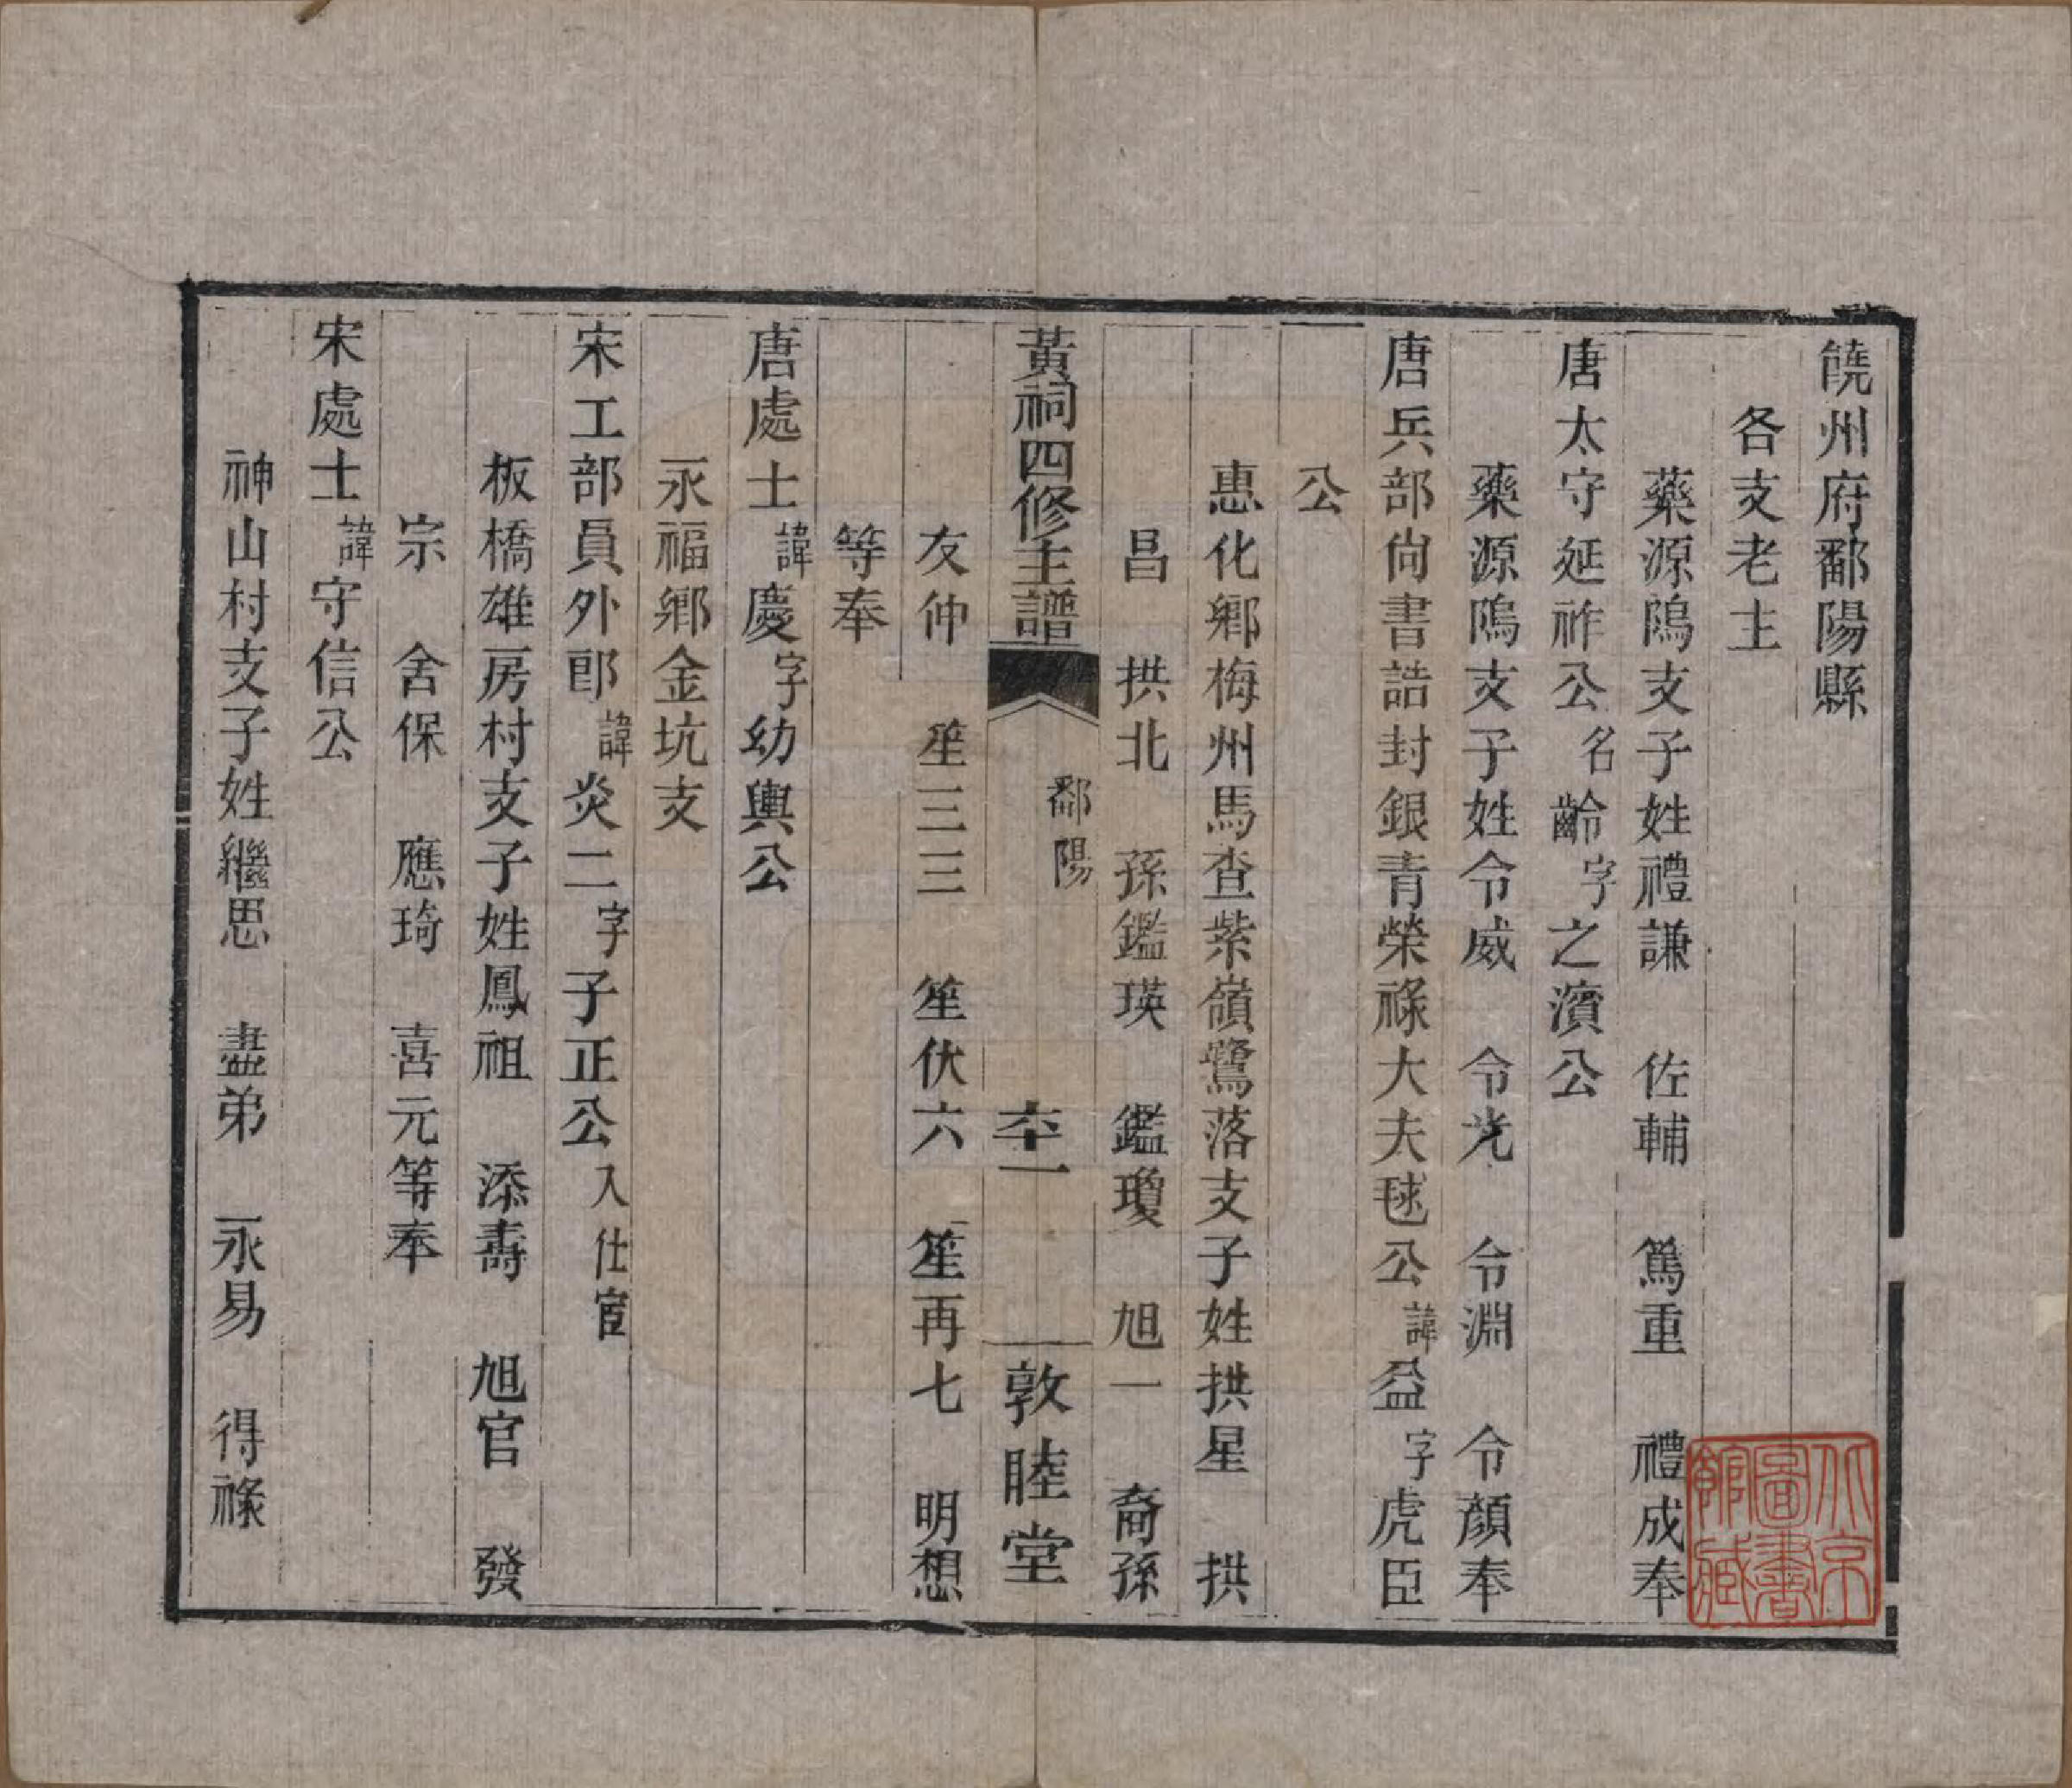 饒州府鄱陽縣
各支老主
藥源隖支子姓禮謙　佐輔　篤重　禮成奉
唐太守延祚公名齡字之濱公
藥源隖支子姓令威　令光　令淵　令顏奉
唐兵部尙書誥封銀青榮祿大夫毬公諱益字虎臣
公
惠化鄉梅州馬查紫嶺鷺落支子姓拱星　拱
昌　拱北　孫鑑瑛　鑑瓊　旭一　裔孫
黃祠四修主譜　鄱陽　六十一　敦睦堂
友仲　笙三三　笙伏六　笙再七　明想
等奉
唐處士諱慶字幼輿公
永福鄉金坑支
宋工部員外郎諱炎二字子正公入仕宦
板橋雄房村支子姓鳳祖　添壽　旭官　發
宗　舍保　應琦　喜元等奉
宋處士諱守信公
神山村支子姓繼思　盡弟　永易　得祿
北京圖書館藏